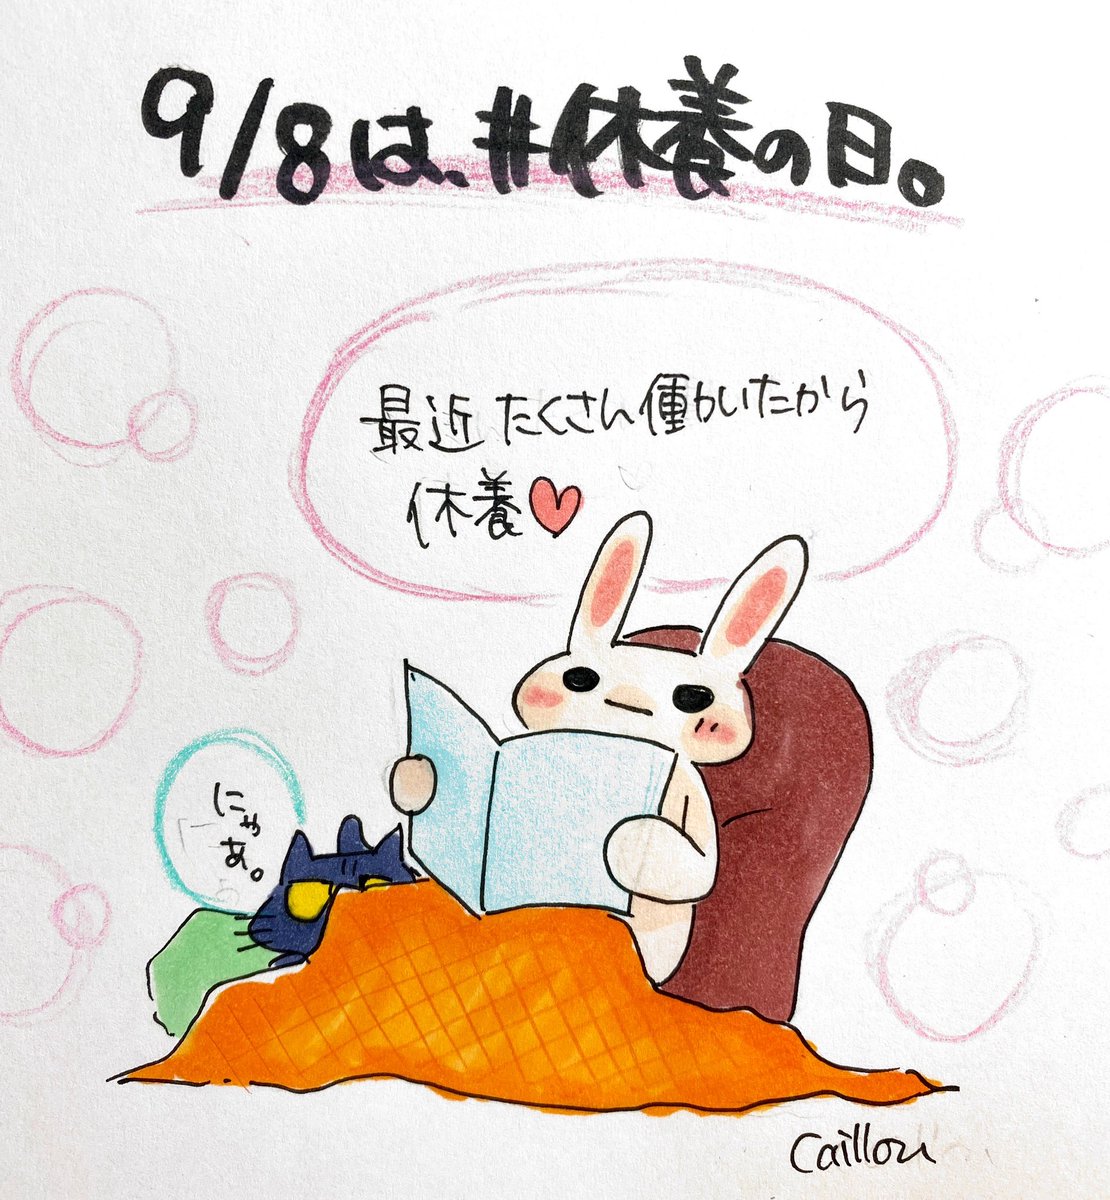 9/8は、#休養の日。
最近たくさん働かいたから
休養♥
にゃ
あ。
Caillou